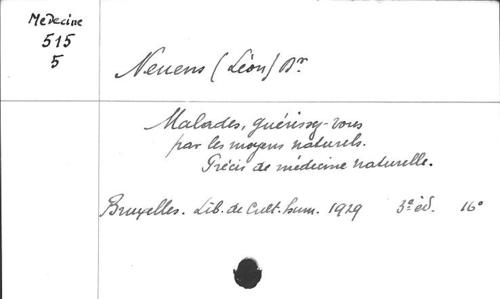 Médecine
515
5
Neuens (Léon) Dr.
Malades, guérissez-vous
par les moyens naturels.
Précis de médecine naturelle.
Bruxelles. Lib. de Cult. hum. 1929 3e éd. 16°